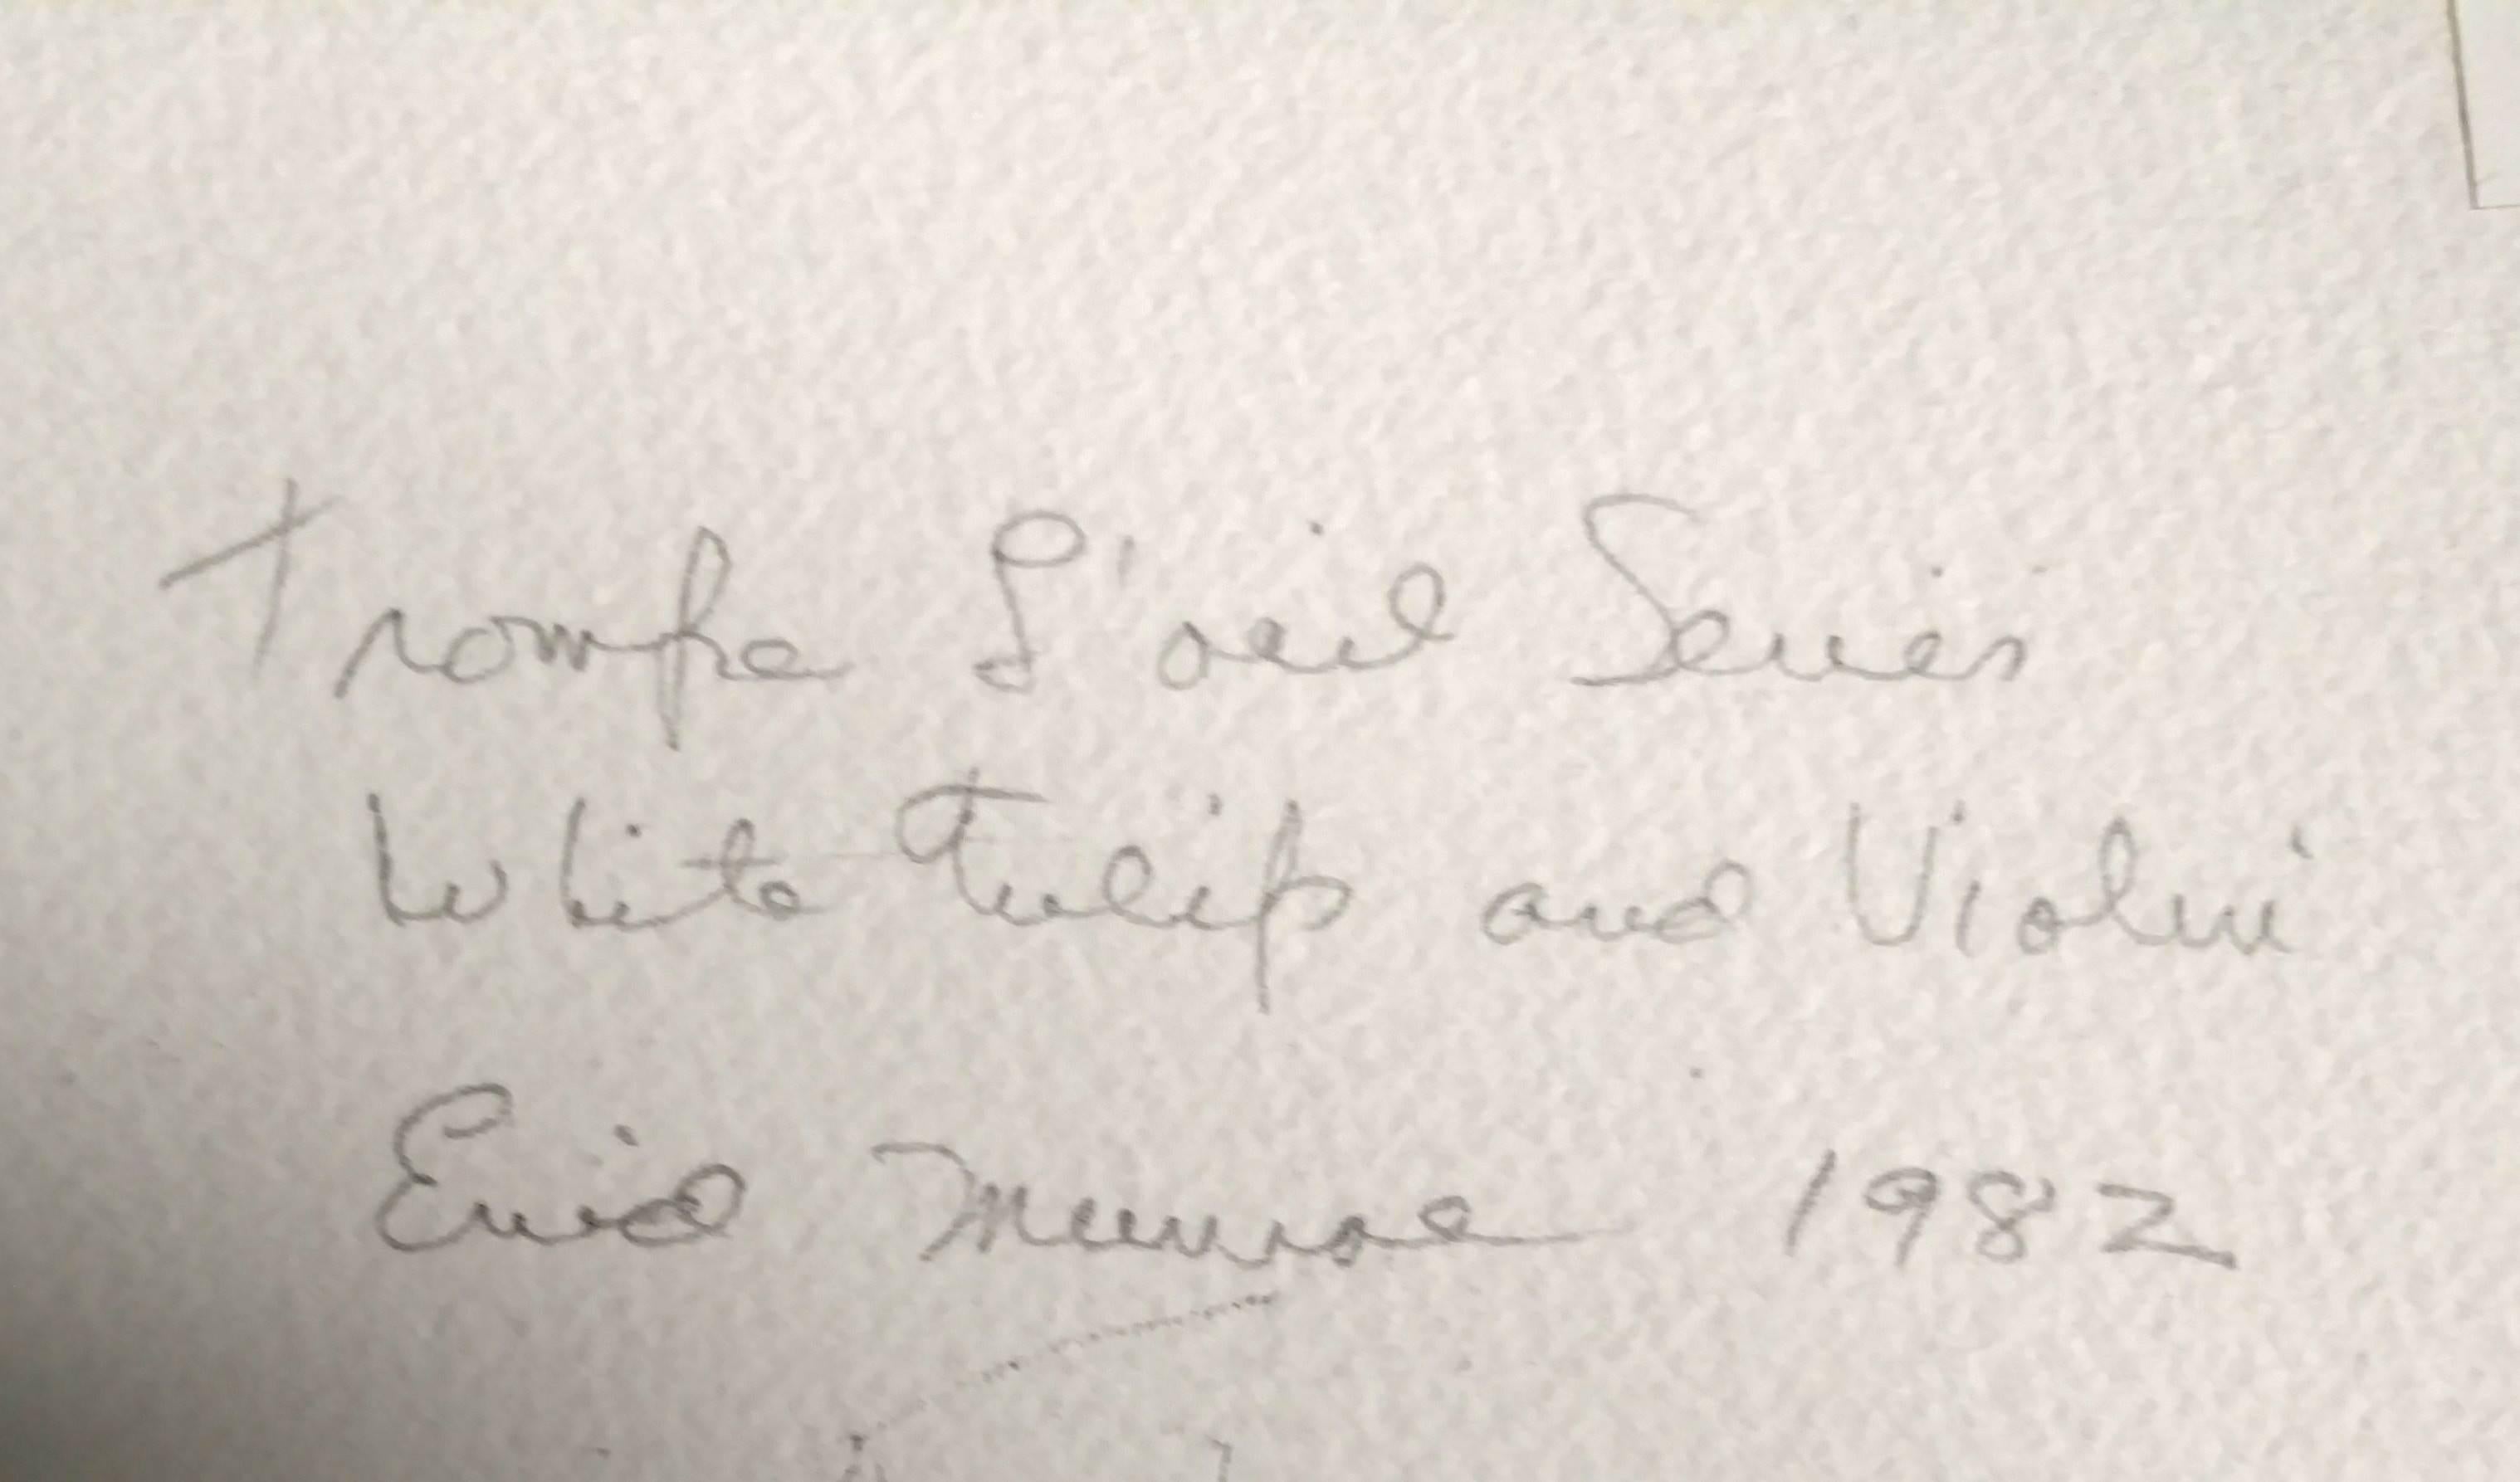 Trompe L'oeil Series
White Tulip and Violin
Enid Munroe 1982